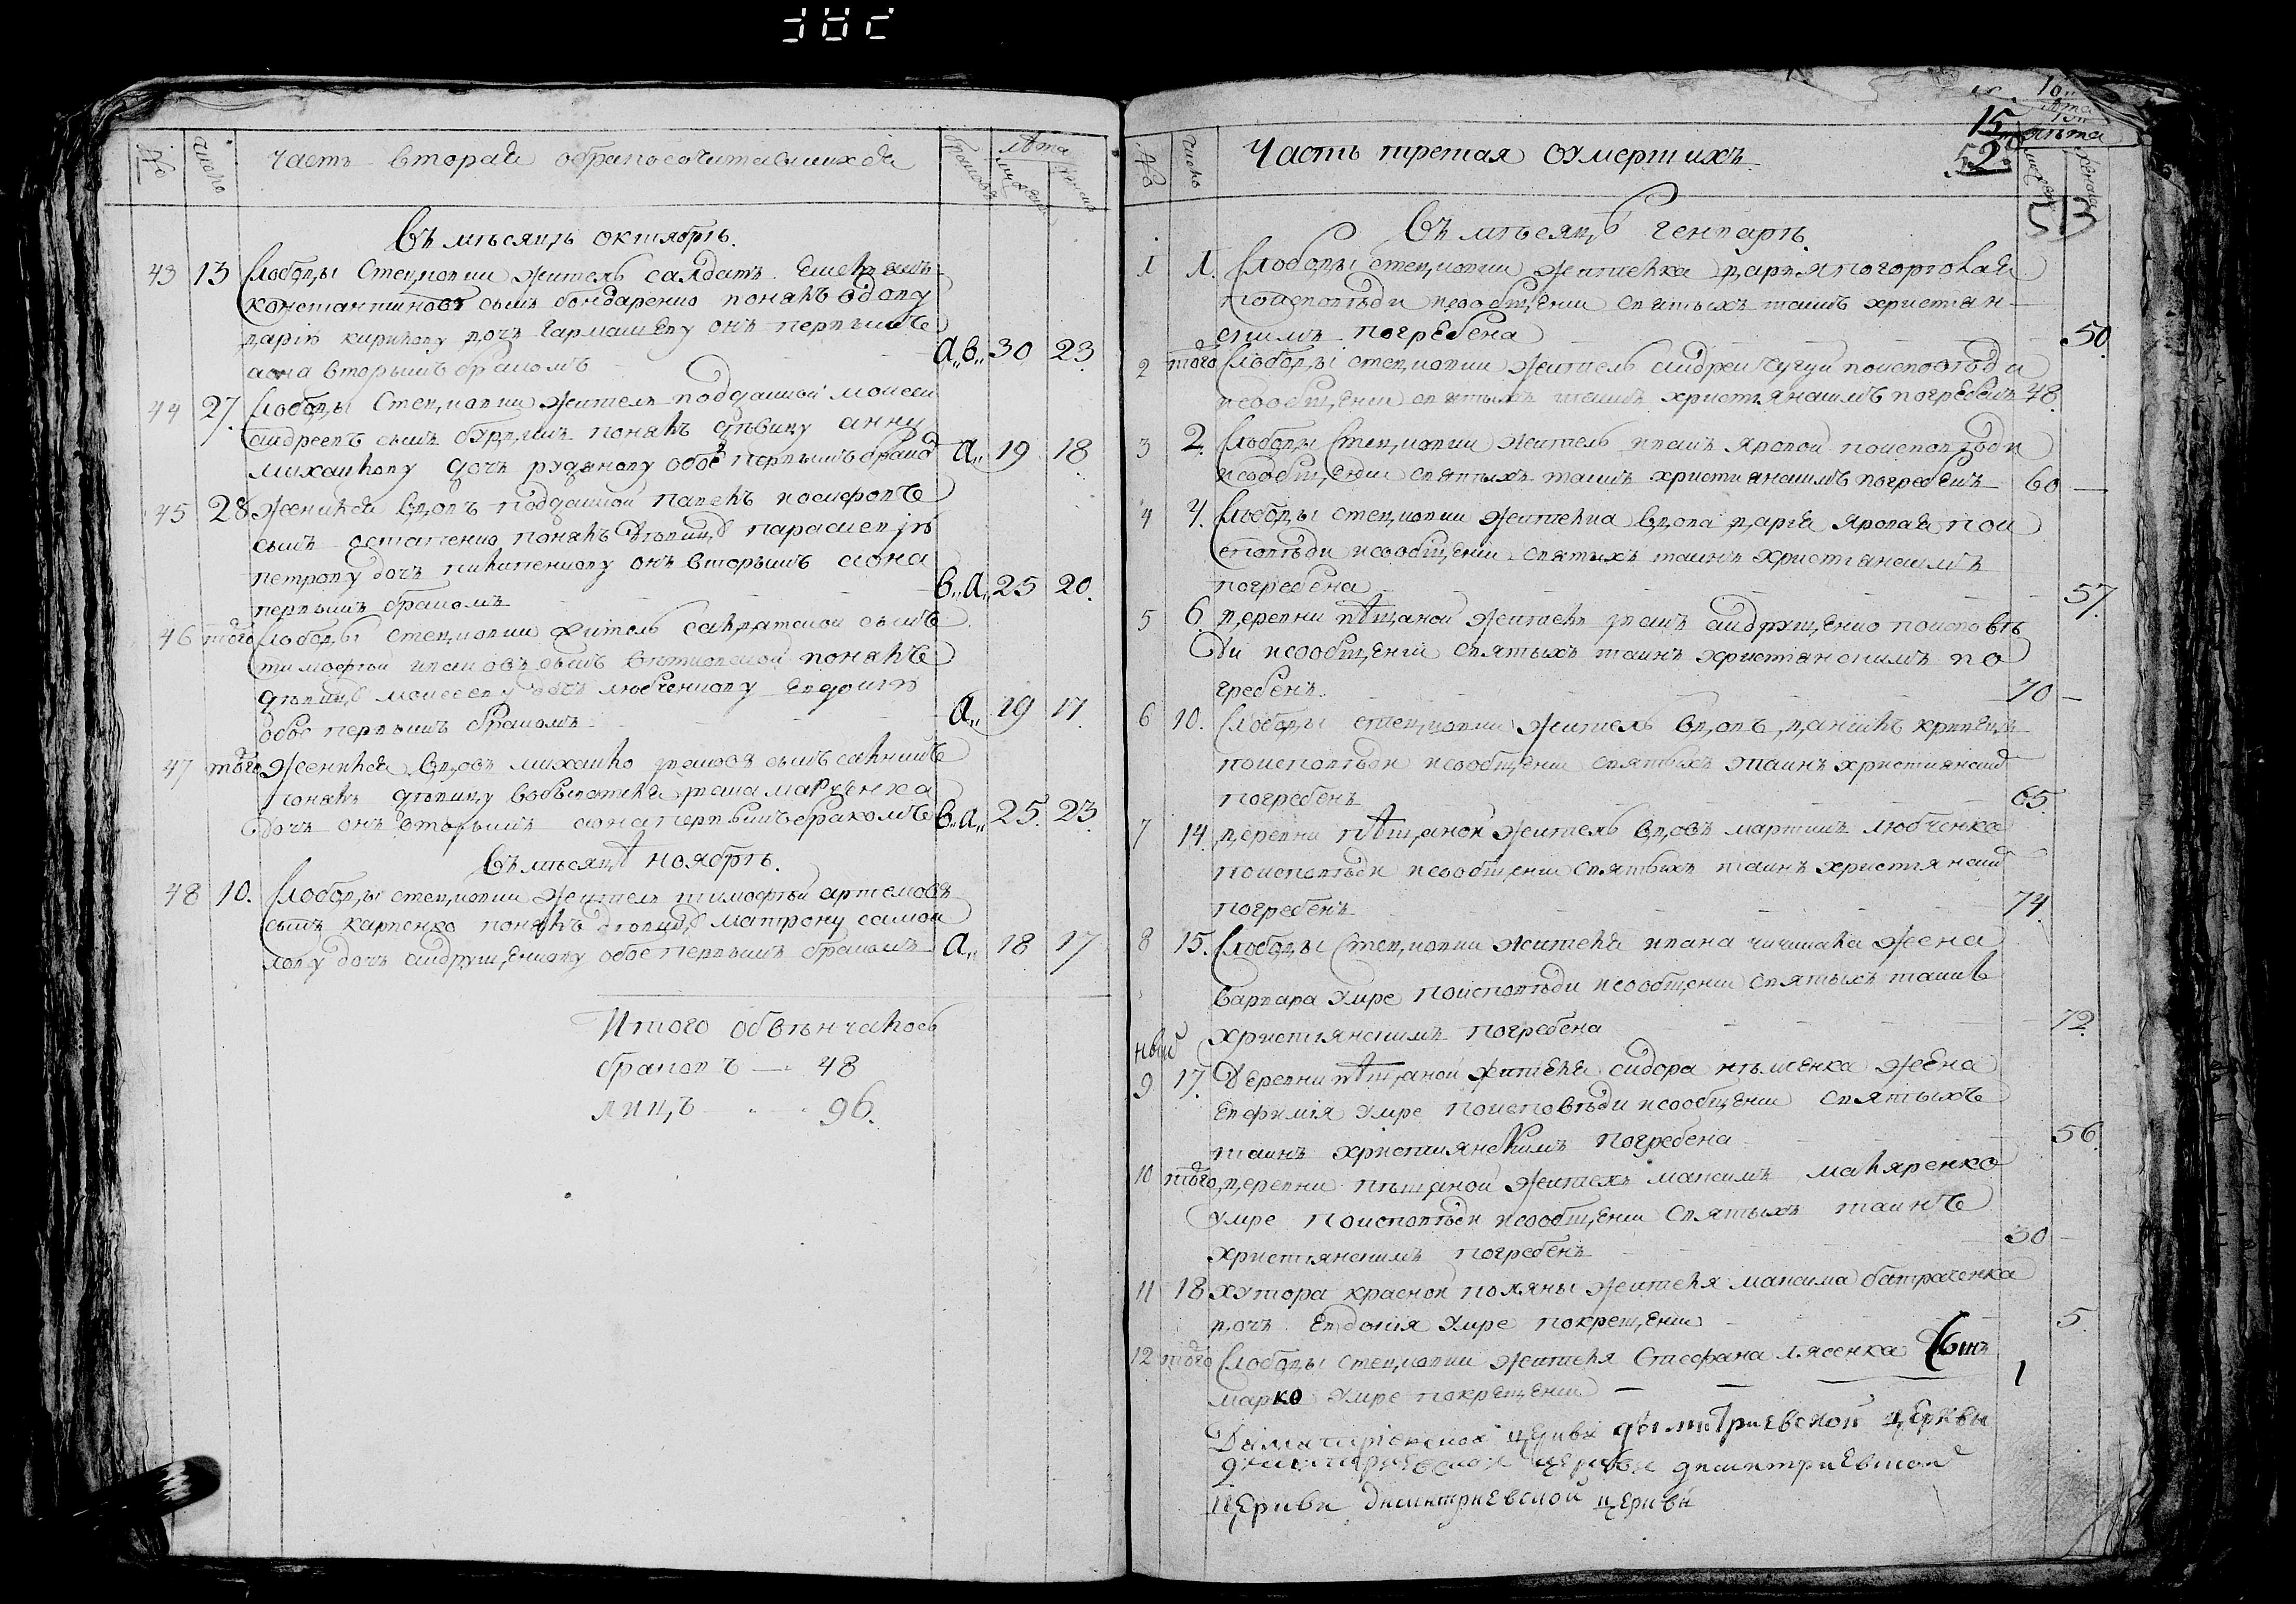 № число часть вторая обракосочитавшихся браковъ лѣта мужеска женска
въ мѣсяцѣ октябрѣ.
43 13 Слободы Стецковки житель салдатъ
константиновъ сынъ бондаренко понялъ вдову
дарію кирилову дочъ гармашеву онъ первымъ
аона вторымъ бракомъ а,,в,, 30 23.
44 27. Слободы Стецковки житель подданной моисей
андреевъ сынъ понялъ дѣвицу анну
михайлову дочъ рудакову обое первымъ бракомъ а,, 19 18.
45 28 жителя вдовъ подданной павелъ иосифовъ
сынъ остапенко понялъ дѣвицу параскевію
петрову дочъ пилипенкову онъ вторымъ аона
первымъ бракомъ в,,а,, 25 20.
46 того Слободы стецковки житель сынъ
тимофей ивановъ сынъ понялъ
дѣвицу моисееву дочъ любченкову евдокию
обое первымъ бракомъ а,, 19 17.
47 того жителя вдовъ михайло сынъ
понялъ дѣвицу марченка
дочъ онъ вторымъ аона первымъ бракомъ в,,а,, 25. 23.
въ мѣсяцѣ ноябрѣ.
48 10. Слободы стецковки житель тимофей артемовъ
сынъ карпенко понялъ дѣвицу матрону самой
лову дочъ андрущенкову обое первымъ бракомъ а,, 18 17
Итого обвѣнчалось
браковъ — 48
лицъ 96.
15
52
53
№ число Часть третая оумершихъ лѣта мужеска женска
въ мѣсяцѣ генварѣ
1 1. Слободы стецковки жителка дарія
поисповѣди исообщении святыхъ таинъ христиан
скимъ погребена 50.
2 того Слободы стецковки житель андрей чугуй поисповѣди
исообщении святыхъ таинъ христіанскимъ погребенъ 48.
3 2. Слободы Стецковки житель иванъ яровой поисповѣди
исообщении святыхъ таинъ христианскимъ погребенъ 60 —
4 4. Слободы стецковки жителка вдова дарія яровая пои
сповѣди исообщении святыхъ таинъ христіанскимъ
погребена 57.
5 6 деревни пѣщаной житель иванъ андрущенко поисповѣ
ди исообщеніи святыхъ таинъ христіанскимъ по
гребенъ. 70 —
6 10. Слободы стецковки житель вдовъ данилъ
поисповѣди исообщении святыхъ таинъ христианским
погребенъ 65.
7 14 деревни пѣщаной житель вдовъ мартинъ любченко
поисповѣди исообщении святыхъ таинъ христіанским
погребенъ 74.
8 15. Слободы Стецковки жителя ивана чичикала жена
варвара умре поисповѣди исообщении святыхъ таинъ
христіанскимъ погребена 72.
9 17. Деревни пѣщаной жителя сидора нѣмченка жена
евфимія умре поисповѣди исообщении святыхъ
таинъ христіанскимъ погребена 56.
10 того деревни пѣщаной житель максимъ маляренко
умре поисповѣди исообщении святыхъ таинъ
христіанскимъ погребенъ 30 —
11 18 хутора красной поляны жителя максима батраченка
дочъ евдокія умре покрещении 5.
12 того Слободы стецковки жителя Стефана лясенка сынъ
марко умре покрещении — 1
церкви димитриевской церкви
церкви димитриевской
церкви димитриевской церкви